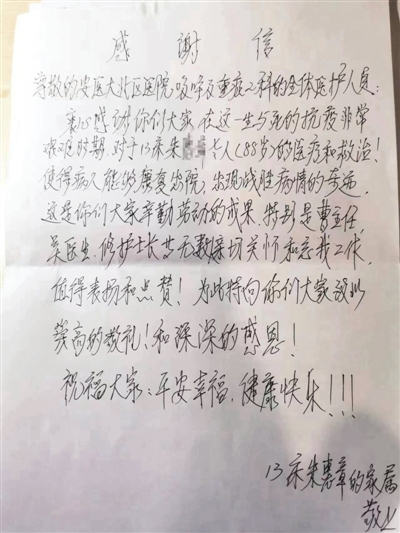 感谢信
尊敬的安医大北区医院,呼吸及重症2科的全体医护人员:
衷心感谢你们大家,在这一生与死的抗疫非常
艰难时期,对于13床朱 老人(88岁)的医疗和救治!
使得病人能够康复出院,出现战胜病情的奇迹,
这是你们大家辛勤劳动的成果,特别是曹主任,
吴医生,修护士长 无数亲切关怀和忘我工作,
值得表扬和点赞!为此特向你们大家致以
崇高的敬礼!和深深的感恩!
祝福大家:平安幸福,健康快乐!!!
13床朱惠章的家属
敬上